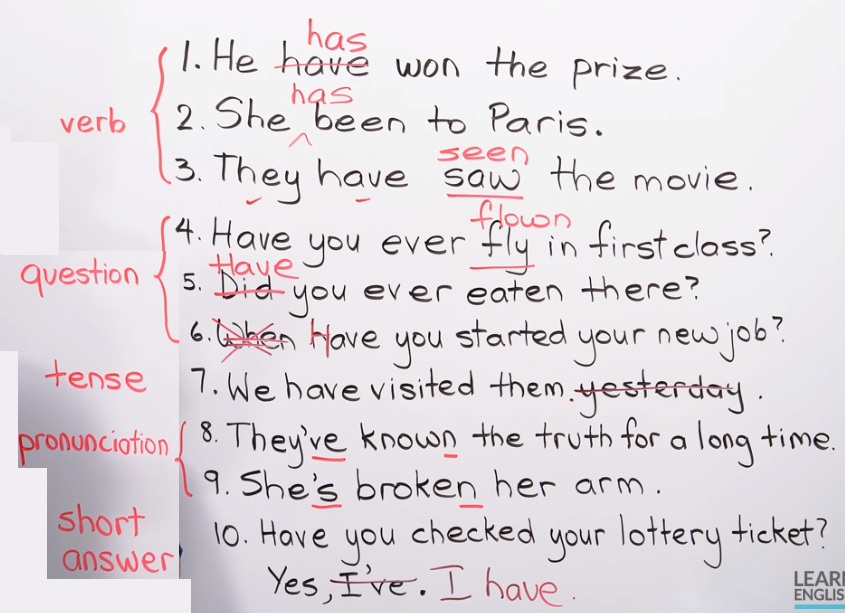 has
1. He have won the prize.
has
verb 2. She ^ been to Paris.
seen
3. They have saw the movie.
flown
4. Have you ever fly in first class?
question Have
5. Did you ever eaten there?
6. When Have you started your new job?
tense 7. We have visited them. yesterday.
pronunciation 8. They've known the truth for a long time.
9. She's broken her arm.
short answer 10. Have you checked your lottery ticket?
Yes, I've. I have.
LEARN
ENGLIS